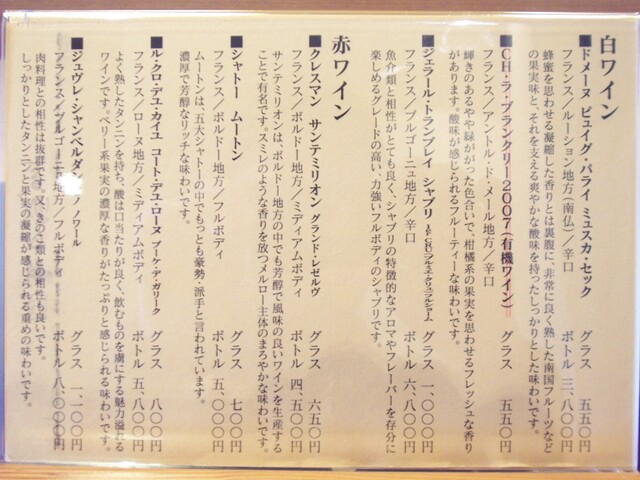 白ワイン
■ドメーヌ ピュイグ・パライ ミュスカ・セック
フランス／ルーション地方（南仏）／辛口
グラス 五五〇円
ボトル 三、八〇〇円
蜂蜜を思わせる凝縮した香りとは裏腹に、非常に良く熟した南国フルーツなど
の果実味と、それを支える爽やかな酸味を持ったしっかりとした味わいです。
■CH・ラ・ブランクリー2007（有機ワイン）
フランス／アントル・ド・メール地方／辛口
グラス 五五〇円
輝きのあるやや緑がかった色合いで、柑橘系の果実を思わせるフレッシュな香り
があります。酸味が感じられるフルーティーな味わいです。
■ジェラール・トランブレイ シャブリ
フランス／ブルゴーニュ地方／辛口
グラス 一、〇〇〇円
ボトル 六、八〇〇円
魚介類と相性がとても良く、シャブリの特徴的なアロマやフレーバーを存分に
楽しめるグレードの高い、力強いフルボディのシャブリです。
赤ワイン
■クレスマン サンテミリオン グランド・レゼルヴ
フランス／ボルドー地方／ミディアムボディ
グラス 六五〇円
ボトル 四、五〇〇円
サンテミリオンは、ボルドー地方の中でも芳醇で風味の良いワインを生産する
ことで有名です。スミレのような香りを放つメルロー主体のまろやかな味わいです。
■シャトー ムートン
フランス／ボルドー地方／フルボディ
グラス 七〇〇円
ボトル 五、〇〇〇円
ムートンは、五大シャトーの中でもっとも豪勢・派手と言われています。
濃厚で芳醇なリッチな味わいです。
■ル・クロ・デュ・カイユ コート・デュ・ローヌ ブーケ・デ・ガリーク
フランス／ローヌ地方／ミディアムボディ
グラス 八〇〇円
ボトル 五、八〇〇円
よく熟したタンニンを持ち、酸は口当たりが良く、飲むものを虜にする魅力溢れる
ワインです。ベリー系果実の濃厚な香りがたっぷりと感じられる味わいです。
■ジュヴレ・シャンベルタン ピノ ノワール
フランス／ブルゴーニュ地方／フルボディ
グラス 一、一〇〇円
ボトル 八、〇〇〇円
肉料理との相性は抜群です。又、きのこ類との相性も良いです。
しっかりとしたタンニンと果実の凝縮が感じられる重めの味わいです。